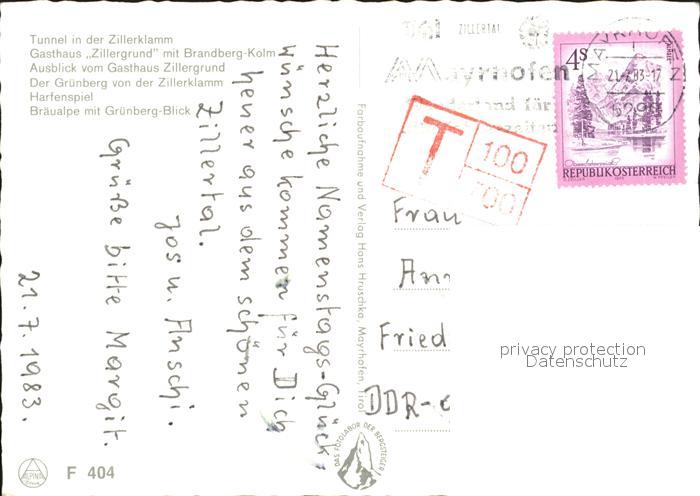 Tunnel in der Zillerklamm
Gasthaus „Zillergrund" mit Brandberg-Kolm
Ausblick vom Gasthaus Zillergrund
Der Grünberg von der Zillerklamm
Harfenspiel
Bräualpe mit Grünberg-Blick
Herzliche Namenstags-Glück-
wünsche kommen für Dich
heuer aus dem schönen
Zillertal.
Jos u. Anschi.
Grüße bitte Margit.
21.7.1983.
ALPINA
F 404
Farbaufnahme und Verlag Hans Hruschka, Mayrhofen, Tirol
DAS FOTOLABOR DER BERGSTEIGER
ZILLERTAL
Mayrhofen
land für
MAYRHOFEN
21.7.83-17
6290
4S
REPUBLIK ÖSTERREICH
T 100
700
Frau
Ann
Fried
DDR-
privacy protection
Datenschutz